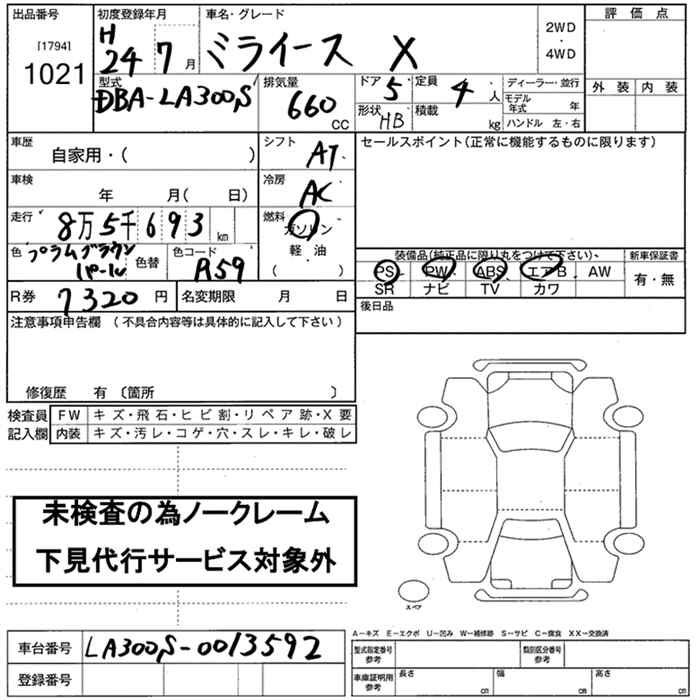 出品番号 初度登録年月 車名・グレード 評価点
[1794] 1021 H 24 7月 ミライース X 2WD・4WD
外装 内装
型式 DBA-LA300S 排気量 660 CC ドア 5 定員 4 人 ディーラー・並行
形状 HB 積載 kg モデル年式 年
ハンドル 左・右
車歴 自家用・( ) シフト AT セールスポイント(正常に機能するものに限ります)
車検 年 月( 日) 冷房 AC
走行 8万5千693 km 燃料 ガソリン
軽油
( )
色 プラムブラウンパール 色替 色コード R59
装備品(純正品に限り丸をつけて下さい) 新車保証書
PS PW ABS エアB AW 有・無
SR ナビ TV カワ
R券 7320 円 名変期限 月 日 後日品
注意事項申告欄 (不具合内容等は具体的に記入して下さい)
修復歴 有 〔箇所 〕
検査員 FW キズ・飛石・ヒビ割・リペア跡・X要
記入欄 内装 キズ・汚レ・コゲ・穴・スレ・キレ・破レ
未検査の為ノークレーム
下見代行サービス対象外
スペア
A-キズ E-エクボ U-凹み W-補修跡 S-サビ C-腐食 XX-交換済
車台番号 LA300S-0013592 型式指定番号 参考 類別区分番号 参考
登録番号 車庫証明用 参考 長さ cm 幅 cm 高さ cm